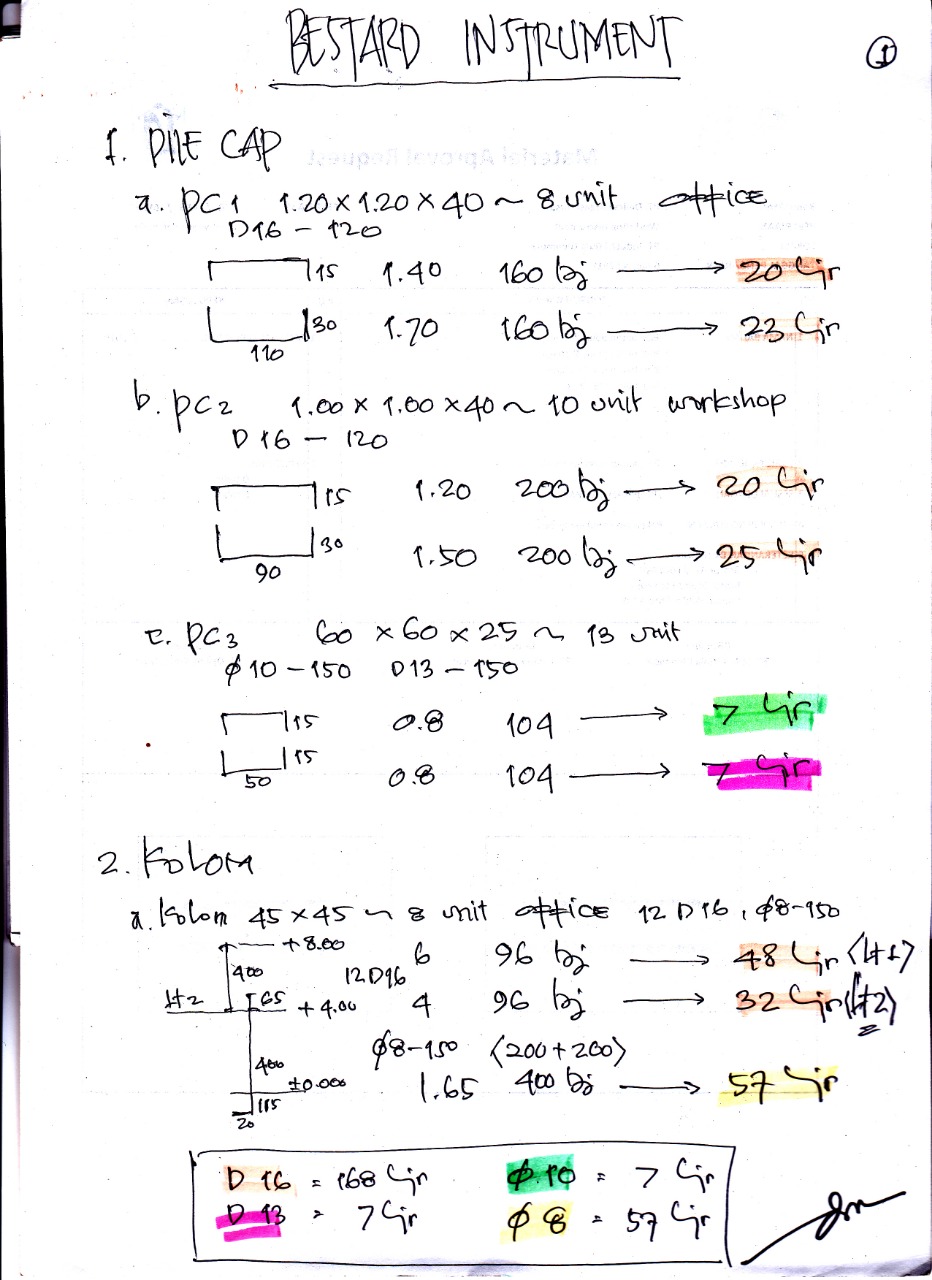 BESTARD INSTRUMENT
1
1. PILE CAP
a. PC1 1.20 x 1.20 x 40 ~ 8 unit office
D16 - 120
15 1.40 160 bj → 20 Ljr
30 1.70 160 bj → 23 Ljr
110
b. PC2 1.00 x 1.00 x 40 ~ 10 unit workshop
D16 - 120
15 1.20 200 bj → 20 Ljr
30 1.50 200 bj → 25 Ljr
90
c. PC3 60 x 60 x 25 ~ 13 unit
ϕ10 - 150 D13 - 150
15 0.8 104 → 7 Ljr
15 0.8 104 → 7 Ljr
50
2. Kolom
a. Kolom 45 x 45 ~ 8 unit office 12 D16, ϕ8-150
+8.00 6 96 bj → 48 Ljr <Lt 1>
400 12D16
Lt 2 65 +4.00 4 96 bj → 32 Ljr <Lt 2>
ϕ8-150 <200+200>
400 ±0.000 1.65 400 bj → 57 Ljr
115
20
D 16 = 168 Ljr ϕ 10 = 7 Ljr
D 13 = 7 Ljr ϕ 8 = 57 Ljr